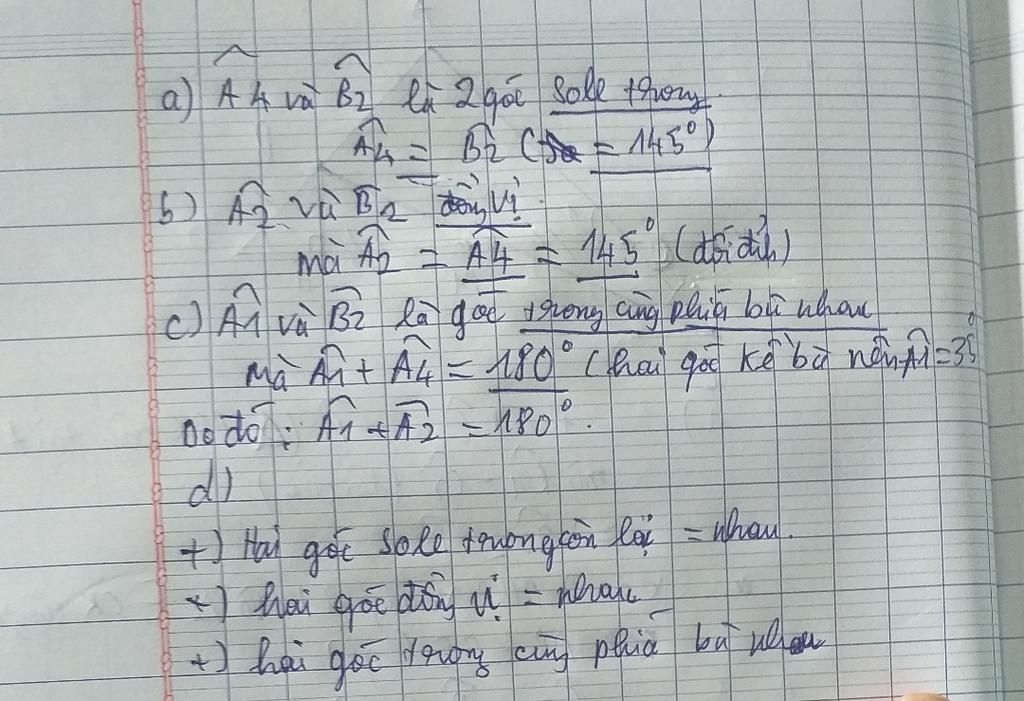 a) Â4 và B̂2 là 2 góc sole trong
Â4 = B̂2 (= 145°)
b) Â2 và B̂2 đồng vị
mà Â2 = Â4 = 145° (đối đỉnh)
c) Â1 và B̂2 là góc trong cùng phía bù nhau
Mà Â1 + Â4 = 180° (hai góc kề bù nên Â1 = 35°
Do đó: Â1 + Â2 = 180°.
d)
+) Hai góc sole trong còn lại = nhau.
+) hai góc đồng vị = nhau
+) hai góc trong cùng phía bù nhau